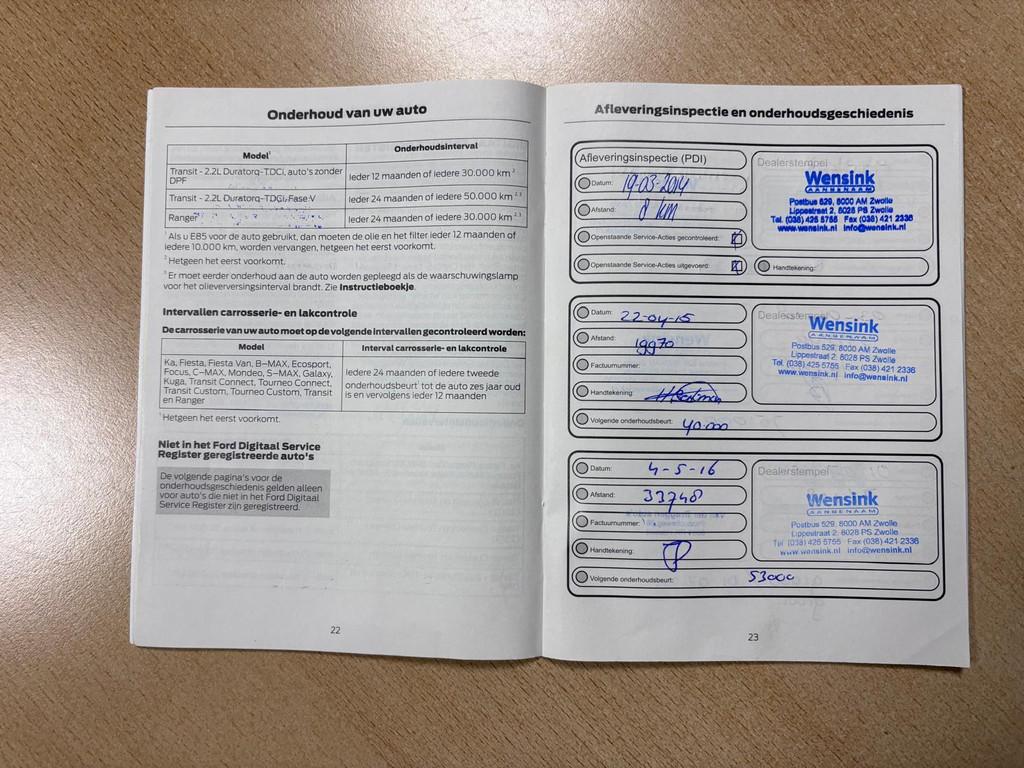 Onderhoud van uw auto
Model¹ Onderhoudsinterval
Transit - 2.2L Duratorq-TDCi, auto's zonder DPF Ieder 12 maanden of iedere 30.000 km ²
Transit - 2.2L Duratorq-TDCi, Fase V Ieder 24 maanden of iedere 50.000 km ² ³
Ranger Ieder 24 maanden of iedere 30.000 km ² ³
¹ Als u E85 voor de auto gebruikt, dan moeten de olie en het filter ieder 12 maanden of
iedere 10.000 km, worden vervangen, hetgeen het eerst voorkomt.
² Hetgeen het eerst voorkomt.
³ Er moet eerder onderhoud aan de auto worden gepleegd als de waarschuwingslamp
voor het olieverversingsinterval brandt. Zie Instructieboekje.
Intervallen carrosserie- en lakcontrole
De carrosserie van uw auto moet op de volgende intervallen gecontroleerd worden:
Model Interval carrosserie- en lakcontrole
Ka, Fiesta, Fiesta Van, B-MAX, Ecosport,
Focus, C-MAX, Mondeo, S-MAX, Galaxy,
Kuga, Transit Connect, Tourneo Connect,
Transit Custom, Tourneo Custom, Transit
en Ranger
Iedere 24 maanden of iedere tweede
onderhoudsbeurt¹ tot de auto zes jaar oud
is en vervolgens ieder 12 maanden
¹ Hetgeen het eerst voorkomt.
Niet in het Ford Digitaal Service
Register geregistreerde auto's
De volgende pagina's voor de
onderhoudsgeschiedenis gelden alleen
voor auto's die niet in het Ford Digitaal
Service Register zijn geregistreerd.
22
Afleveringsinspectie en onderhoudsgeschiedenis
Afleveringsinspectie (PDI)
Datum: 19-03-2014
Afstand: 8 km
Openstaande Service-Acties gecontroleerd:
Openstaande Service-Acties uitgevoerd:
Dealerstempel
Wensink
AANGENAAM
Postbus 529, 8000 AM Zwolle
Lippestraat 2, 8028 PS Zwolle
Tel. (038) 425 5755 Fax (038) 421 2336
www.wensink.nl info@wensink.nl
Handtekening:
Datum: 22-04-15
Afstand: 19970
Factuurnummer:
Handtekening:
Volgende onderhoudsbeurt: 40.000
Dealerstempel
Wensink
AANGENAAM
Postbus 529, 8000 AM Zwolle
Lippestraat 2, 8028 PS Zwolle
Tel. (038) 425 5755 Fax (038) 421 2336
www.wensink.nl info@wensink.nl
Datum: 4-5-16
Afstand: 33748
Factuurnummer:
Handtekening:
Volgende onderhoudsbeurt: 53000
Dealerstempel
Wensink
AANGENAAM
Postbus 529, 8000 AM Zwolle
Lippestraat 2, 8028 PS Zwolle
Tel (038) 425 5755 Fax (038) 421 2336
www.wensink.nl info@wensink.nl
23